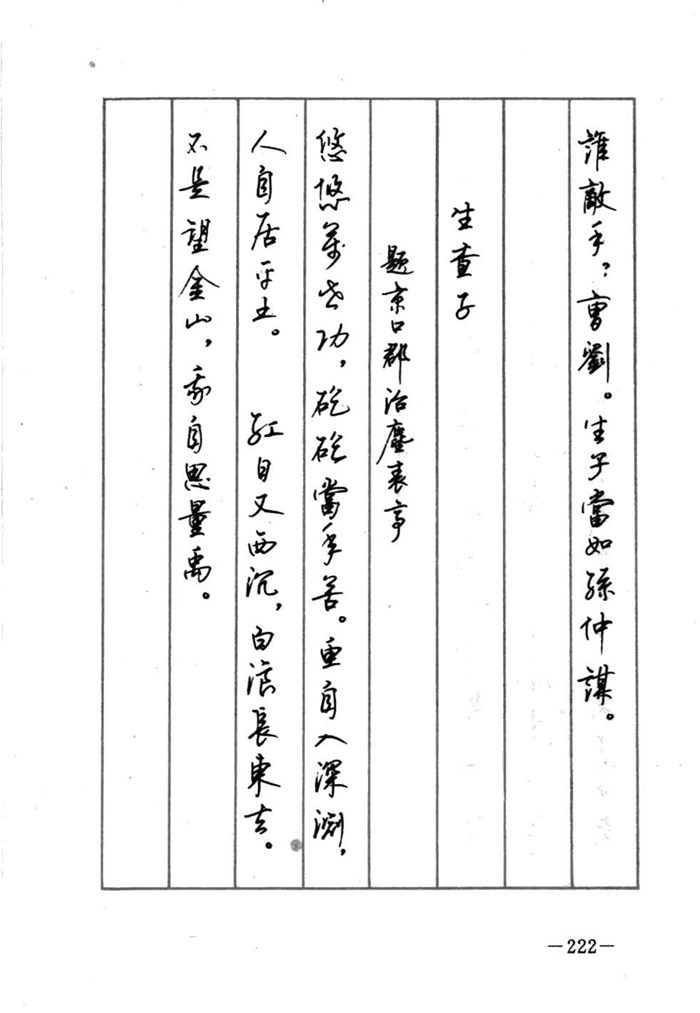 誰敵手？曹劉。生子當如孫仲謀。
生查子
題京口郡治塵表亭
悠悠萬世功，矻矻當年苦。魚自入深淵，
人自居平土。 紅日又西沉，白浪長東去。
不是望金山，我自思量禹。
—222—